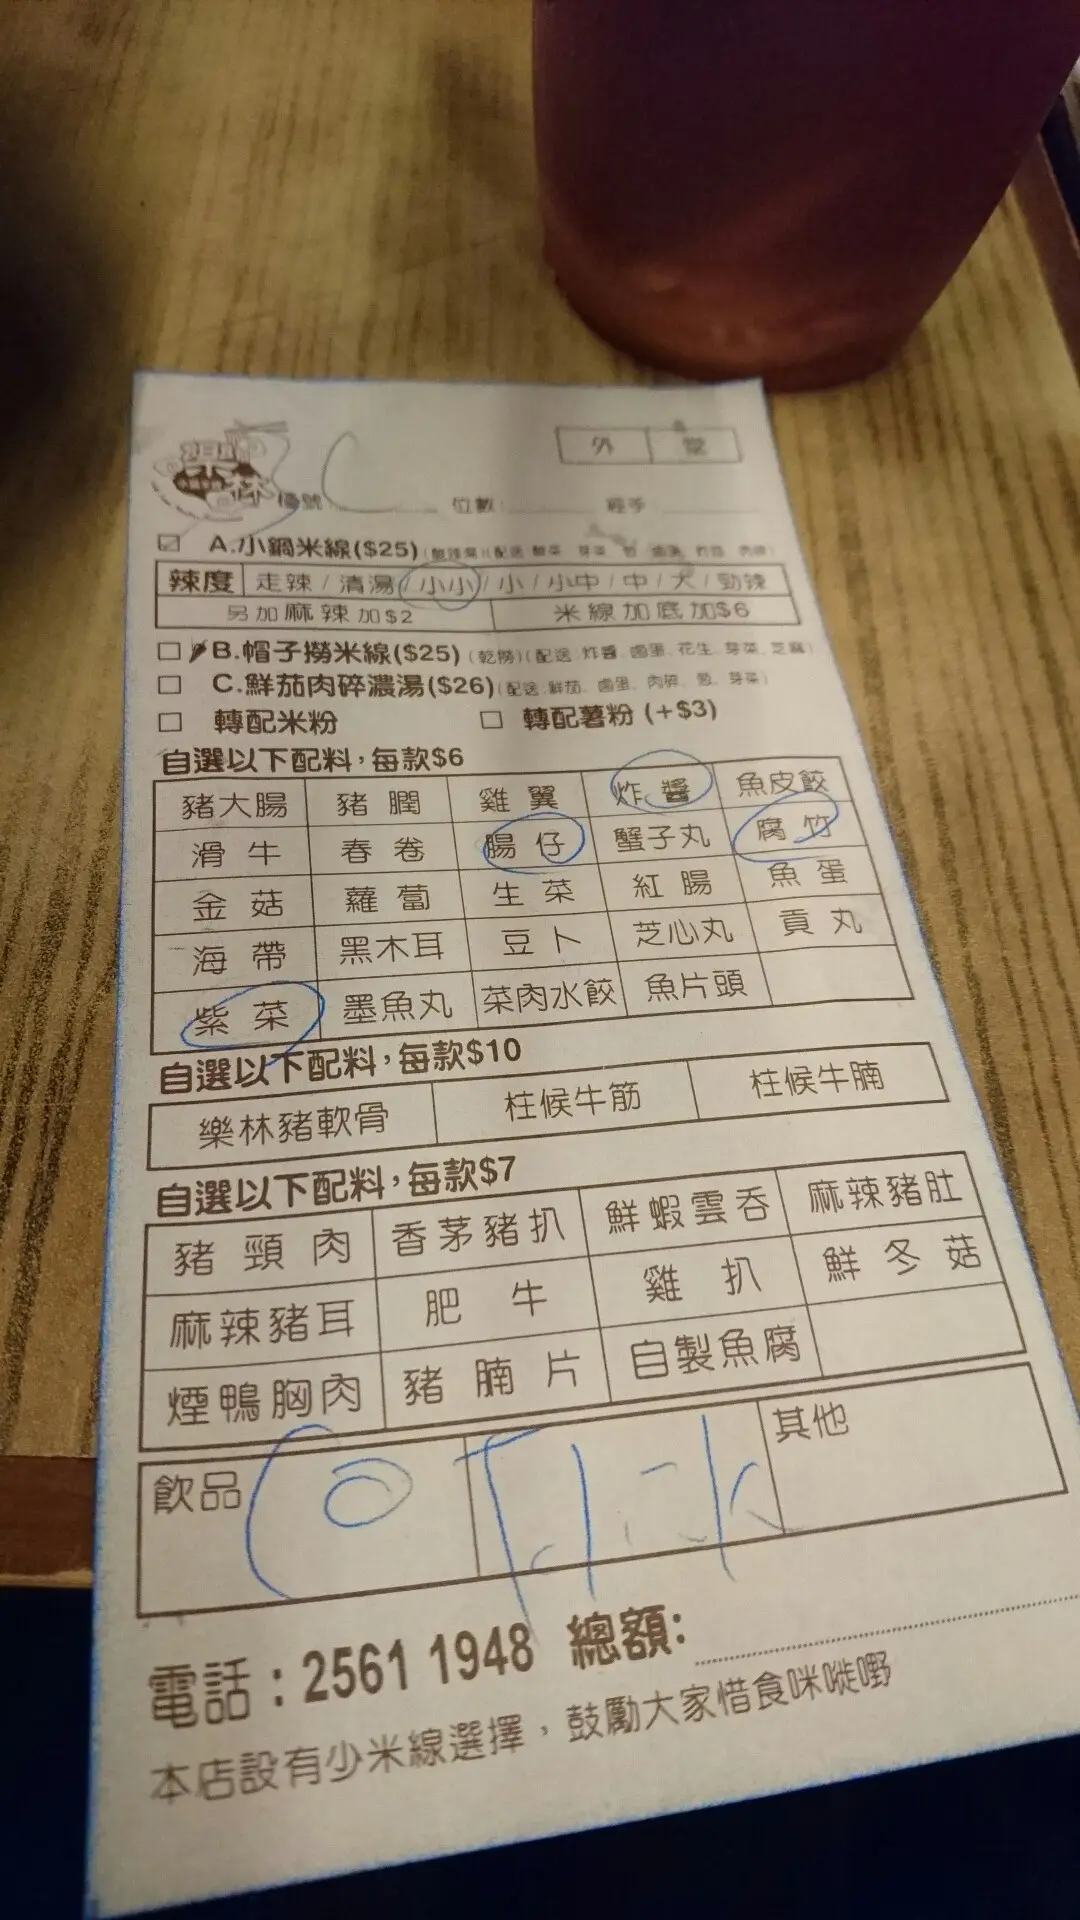 外 堂
檯號: 位數: 經手:
A.小鍋米線($25)
辣度 走辣 / 清湯 / 小小 / 小 / 小中 / 中 / 大 / 勁辣
另加麻辣加$2 米線加底加$6
B.帽子撈米線($25) (乾撈)(配送:炸醬、鹵蛋、花生、芽菜、芝麻)
C.鮮茄肉碎濃湯($26) (配送:鮮茄、鹵蛋、肉碎、葱、芽菜)
轉配米粉 轉配薯粉 (+$3)
自選以下配料，每款$6
豬大腸 豬膶 雞翼 炸醬 魚皮餃
滑牛 春卷 腸仔 蟹子丸 腐竹
金菇 蘿蔔 生菜 紅腸 魚蛋
海帶 黑木耳 豆卜 芝心丸 貢丸
紫菜 墨魚丸 菜肉水餃 魚片頭
自選以下配料，每款$10
樂林豬軟骨 柱候牛筋 柱候牛腩
自選以下配料，每款$7
豬頸肉 香茅豬扒 鮮蝦雲吞 麻辣豬肚
麻辣豬耳 肥牛 雞扒 鮮冬菇
煙鴨胸肉 豬腩片 自製魚腐
飲品 其他
電話：2561 1948 總額:
本店設有少米線選擇，鼓勵大家惜食咪嘥嘢